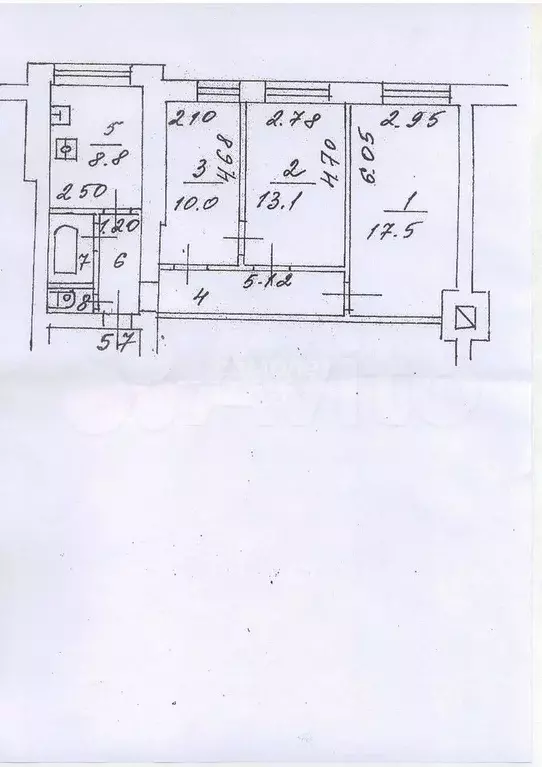 5
8.8
2.50
1.20
7
6
8
57
2.10
4.68
3
10.0
2.78
4.70
2
13.1
2.95
6.05
1
17.5
4
5.12
Avito